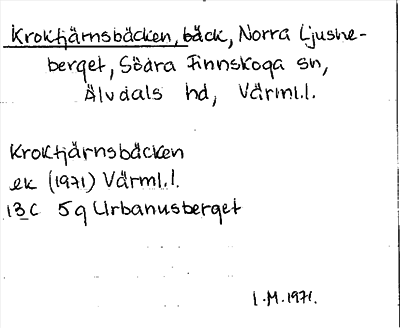 Kroktjärnsbäcken, bäck, Norra Ljusne-
berget, Södra Finnskoga sn,
Älvdals hd, Värml.l.
Kroktjärnsbäcken
ek (1971) Värml.l.
13C 5g Urbanusberget
I.M. 1971.